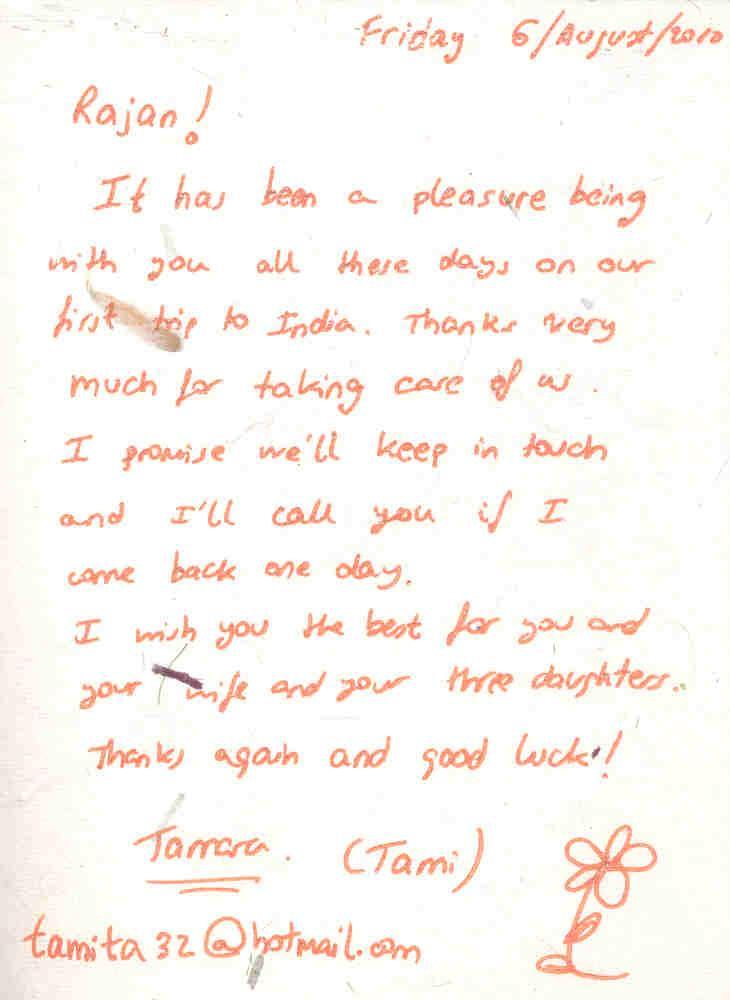 Friday 6/August/2010
Rajan!
It has been a pleasure being
with you all these days on our
first trip to India. Thanks very
much for taking care of us.
I promise we'll keep in touch
and I'll call you if I
come back one day.
I wish you the best for you and
your wife and your three daughters.
Thanks again and good luck!
Tamara. (Tami)
tamita32@hotmail.com